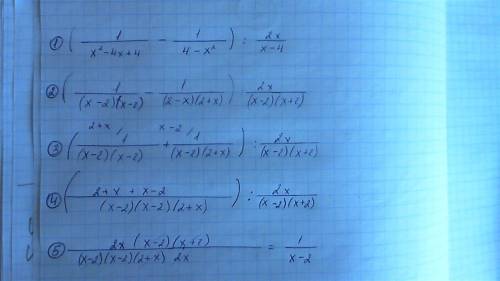 ① ( 1 / (x²-4x+4) - 1 / (4-x²) ) : 2x / (x-4)
② ( 1 / (x-2)(x-2) - 1 / (2-x)(2+x) ) : 2x / (x-2)(x+2)
③ ( 2+x/ 1 / (x-2)(x-2) + x-2/ 1 / (x-2)(2+x) ) : 2x / (x-2)(x+2)
④ ( 2+x+x-2 / (x-2)(x-2)(2+x) ) : 2x / (x-2)(x+2)
⑤ 2x (x-2)(x+2) / (x-2)(x-2)(2+x) 2x = 1 / (x-2)